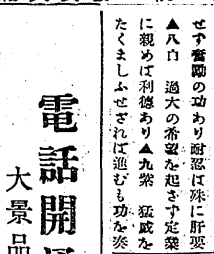 せず奮闘の功あり耐忍は殊に肝要
▲八白　過大の希望を起さず定業
に親めば利徳あり▲九紫　猛威を
たくましふせざれば進むも功を奏
電話開通
大景品